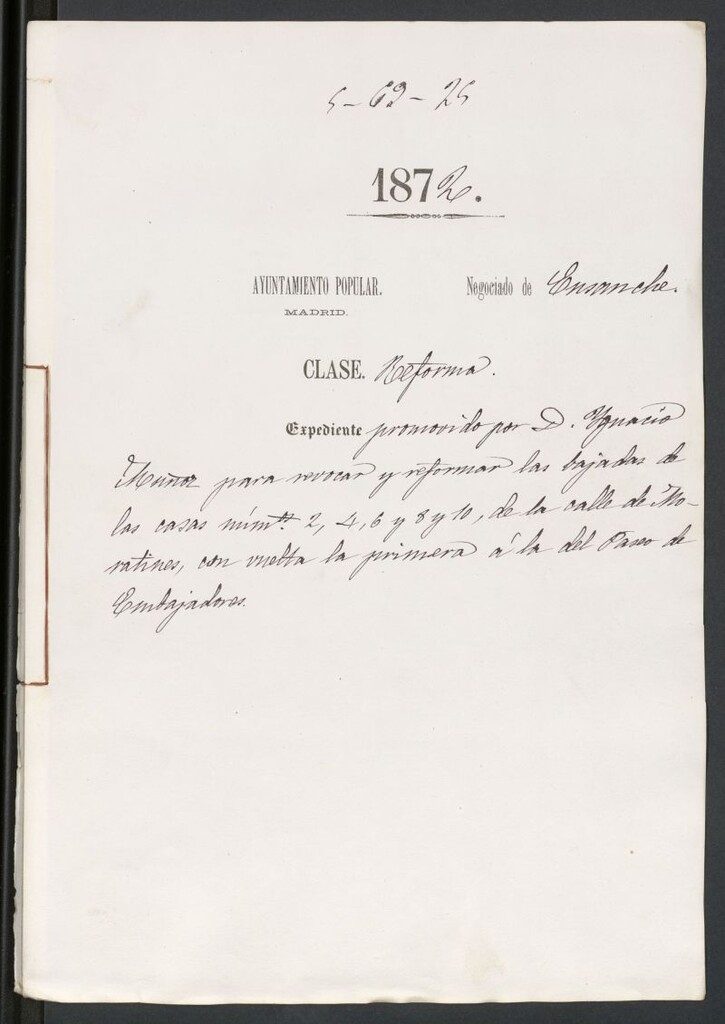 5-69-25
1872.
AYUNTAMIENTO POPULAR. Negociado de Ensanche.
MADRID.
CLASE. Reforma.
Expediente promovido por D. Ygnacio
Muñoz para revocar y reformar las bajadas de
las casas núms. 2, 4, 6 y 8 y 10, de la calle de Mo-
ratines, con vuelta la primera á la del Paseo de
Embajadores.